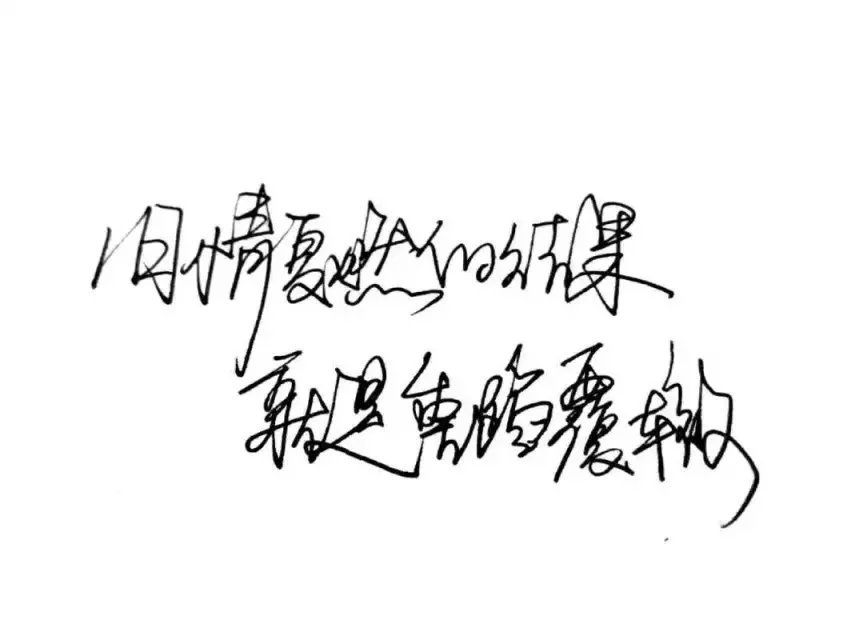 旧情复燃的结果
就是重蹈覆辙